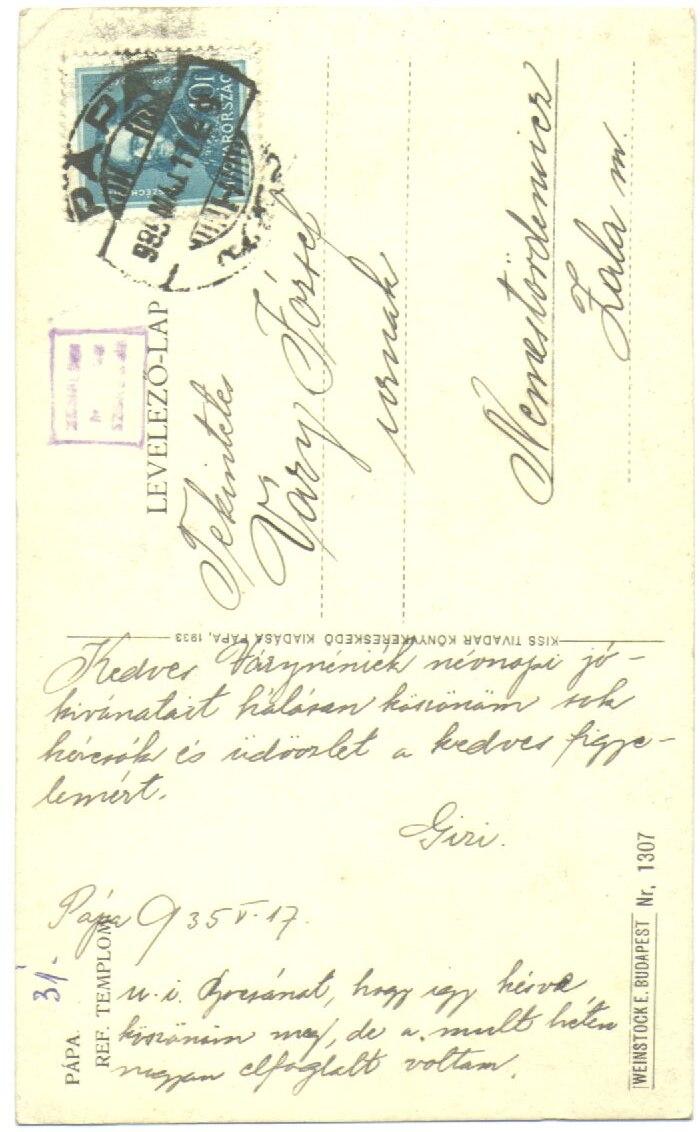 PÁPA
935 MÁJ 17
10f
MAGYARORSZÁG
LEVELEZŐ-LAP
Tekintetes
Váry József
urnak
Nemestördemicz
Zala m.
KISS TIVADAR KÖNYVKERESKEDŐ KIADÁSA PÁPA, 1933
Kedves Várynéniék névnapi jó-
kivánatait hálásan köszönöm sok
kézcsók és üdvözlet a kedves figye-
lemért.
Giri.
Pápa 935 V. 17.
u. i. Bocsánat, hogy igy késve
köszönöm meg, de a mult héten
nagyon elfoglalt voltam.
31-
PÁPA.
REF. TEMPLOM
WEINSTOCK E. BUDAPEST Nr, 1307